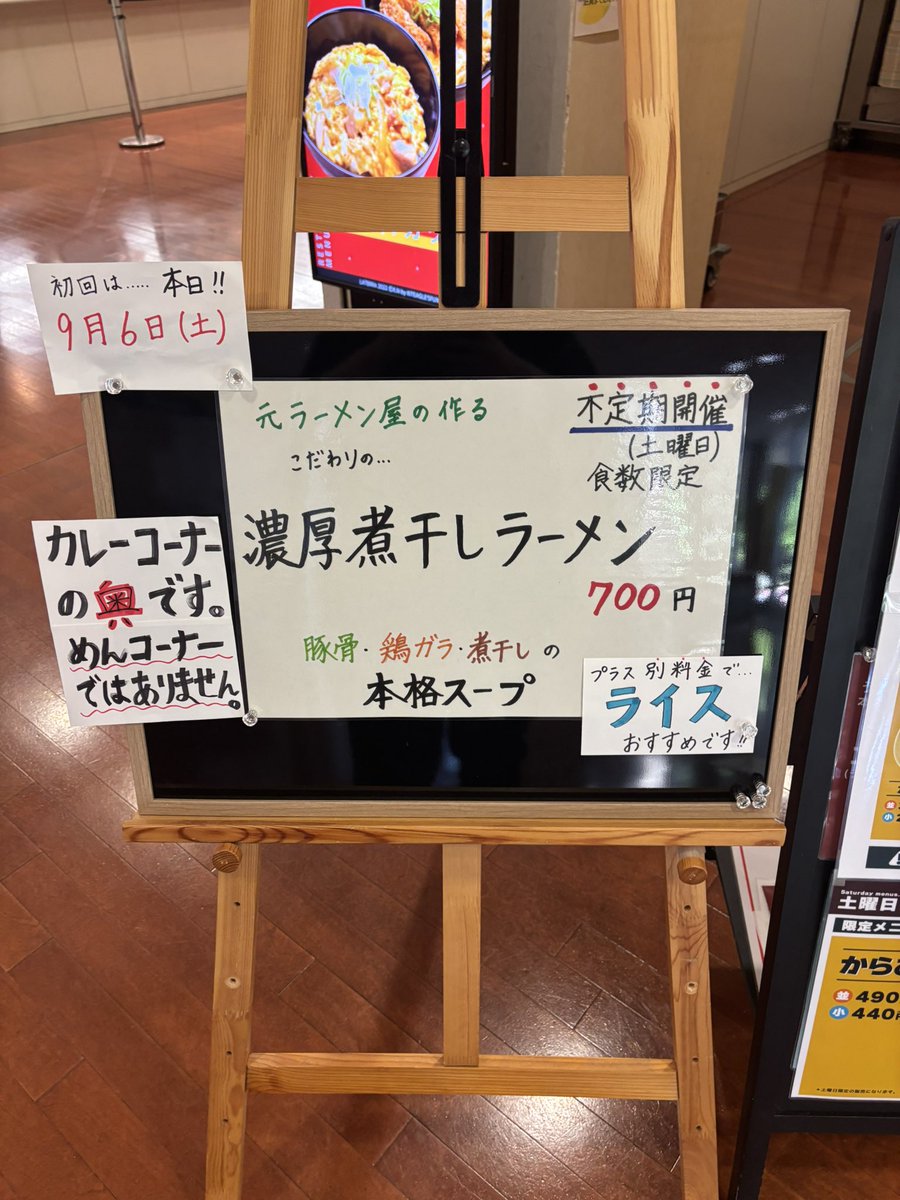 初回は..... 本日!!
9月6日(土)
元ラーメン屋の作る
こだわりの...
不定期開催
(土曜日)
食数限定
濃厚煮干しラーメン
700円
豚骨・鶏ガラ・煮干しの
本格スープ
カレーコーナー
の奥です。
めんコーナー
ではありません。
プラス別料金で...
ライス
おすすめです!!
Saturday menus
土曜日
限定メニ
から
並 490
小 440円